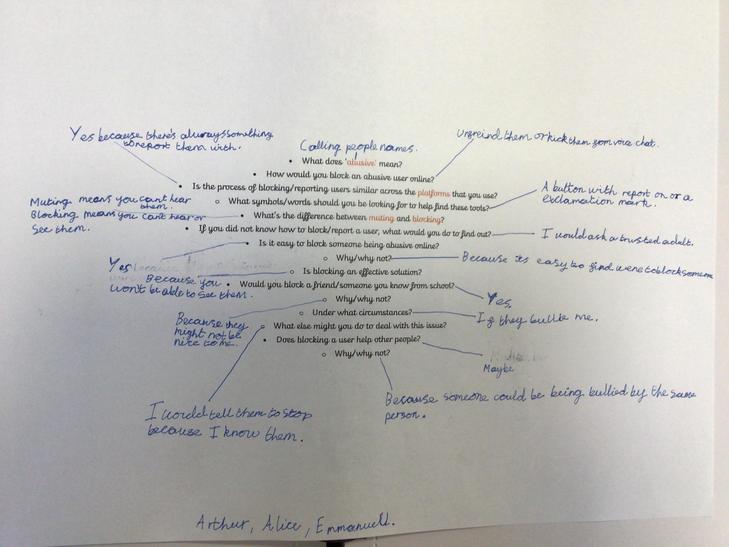 Yes because there's always something
to report them with.
Calling people names.
unfreind them or kick them from voice chat.
• What does 'abusive' mean?
• How would you block an abusive user online?
• Is the process of blocking/reporting users similar across the platforms that you use?
○ What symbols/words should you be looking for to help find these tools?
A button with report on or a
exclamation mark.
Muting means you cant hear
them.
Blocking means you cant hear or
see them.
• What's the difference between muting and blocking?
• If you did not know how to block/report a user, what would you do to find out?
I would ask a trusted adult.
• Is it easy to block someone being abusive online?
○ Why/why not?
Because its easy to find were to block someone
Yes
○ Is blocking an effective solution?
Because you
won't be able to see them.
• Would you block a friend/someone you know from school?
Yes,
○ Why/why not?
○ Under what circumstances?
If they bullie me.
Because they
might not be
nice to me.
○ What else might you do to deal with this issue?
• Does blocking a user help other people?
Maybe
○ Why/why not?
Because someone could be being bullied by the same
person.
I would tell them to stop
because I know them.
Arthur, Alice, Emmanuell.